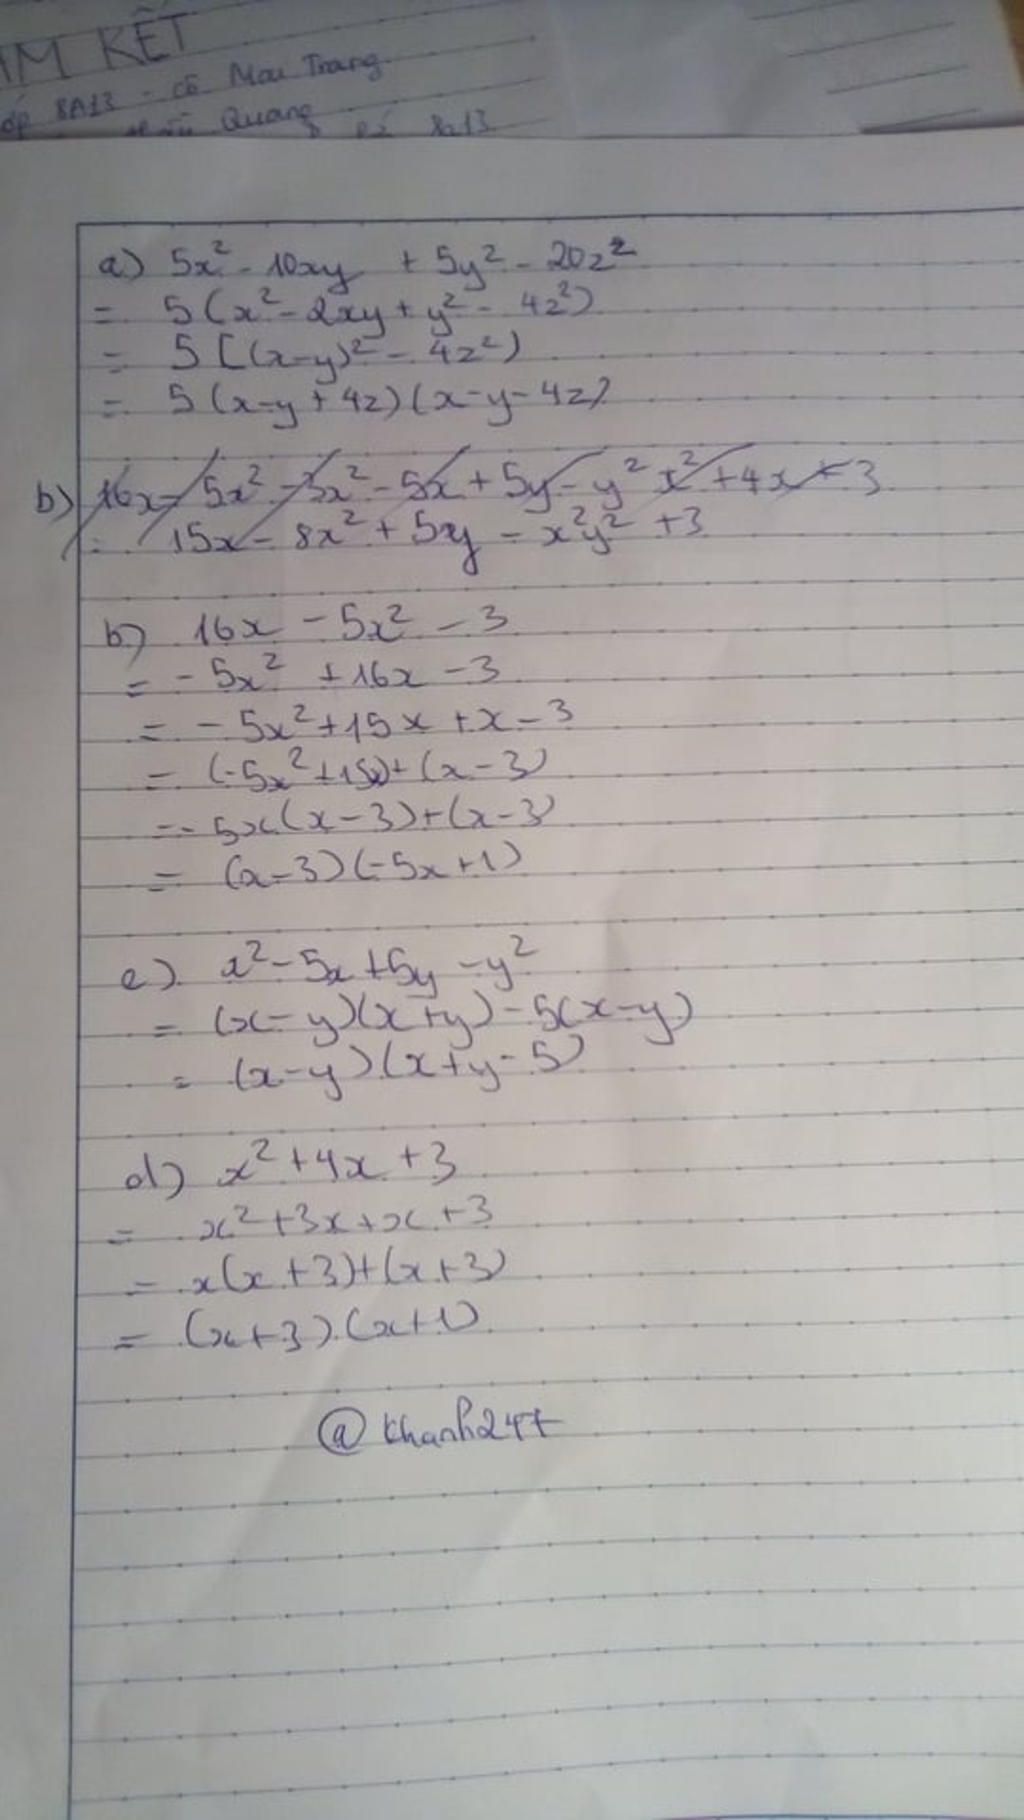 ẾT
8A13 - cô Mai Trang
Quang 8a13
a) 5x² - 10xy + 5y² - 20z²
= 5(x² - 2xy + y² - 4z²)
= 5[(x-y)² - 4z²)
= 5(x-y+4z)(x-y-4z)
b) 16x - 5x² - 3x² - 5x + 5y - y² x² + 4x + 3
= 15x - 8x² + 5y - x²y² + 3
b) 16x - 5x² - 3
= -5x² + 16x - 3
= -5x² + 15x + x - 3
= (-5x² + 15x) + (x - 3)
= -5x(x - 3) + (x - 3)
= (x - 3)(-5x + 1)
c) x² - 5x + 5y - y²
= (x - y)(x + y) - 5(x - y)
= (x - y)(x + y - 5)
d) x² + 4x + 3
= x² + 3x + x + 3
= x(x + 3) + (x + 3)
= (x + 3).(x + 1)
@khanh247